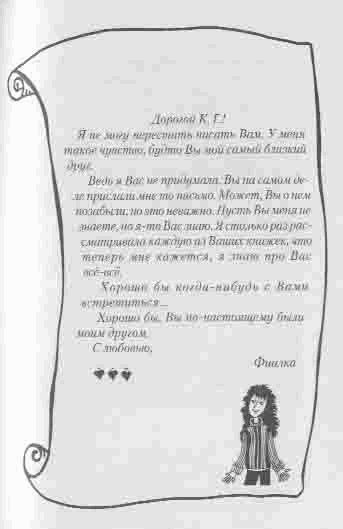 Дорогой К. Г.!
Я не могу перестать писать Вам. У меня
такое чувство, будто Вы мой самый близкий
друг.
Ведь я Вас не придумала. Вы на самом де-
ле прислали мне то письмо. Может, Вы о нем
позабыли, но это неважно. Пусть Вы меня не
знаете, но я-то Вас знаю. Я столько раз рас-
сматривала каждую из Ваших книжек, что
теперь мне кажется, я знаю про Вас
всё-всё.
Хорошо бы когда-нибудь с Вами
встретиться...
Хорошо бы, Вы по-настоящему были
моим другом.
С любовью,
Фиалка